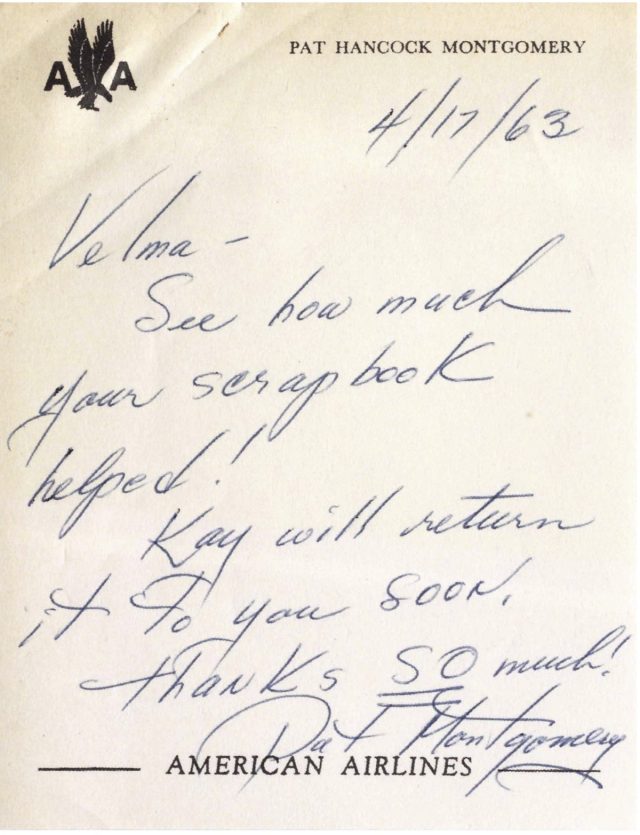 A A
PAT HANCOCK MONTGOMERY
4/17/63
Velma –
See how much
your scrapbook
helped!
Kay will return
it to you soon.
Thanks SO much!
Pat Montgomery
AMERICAN AIRLINES